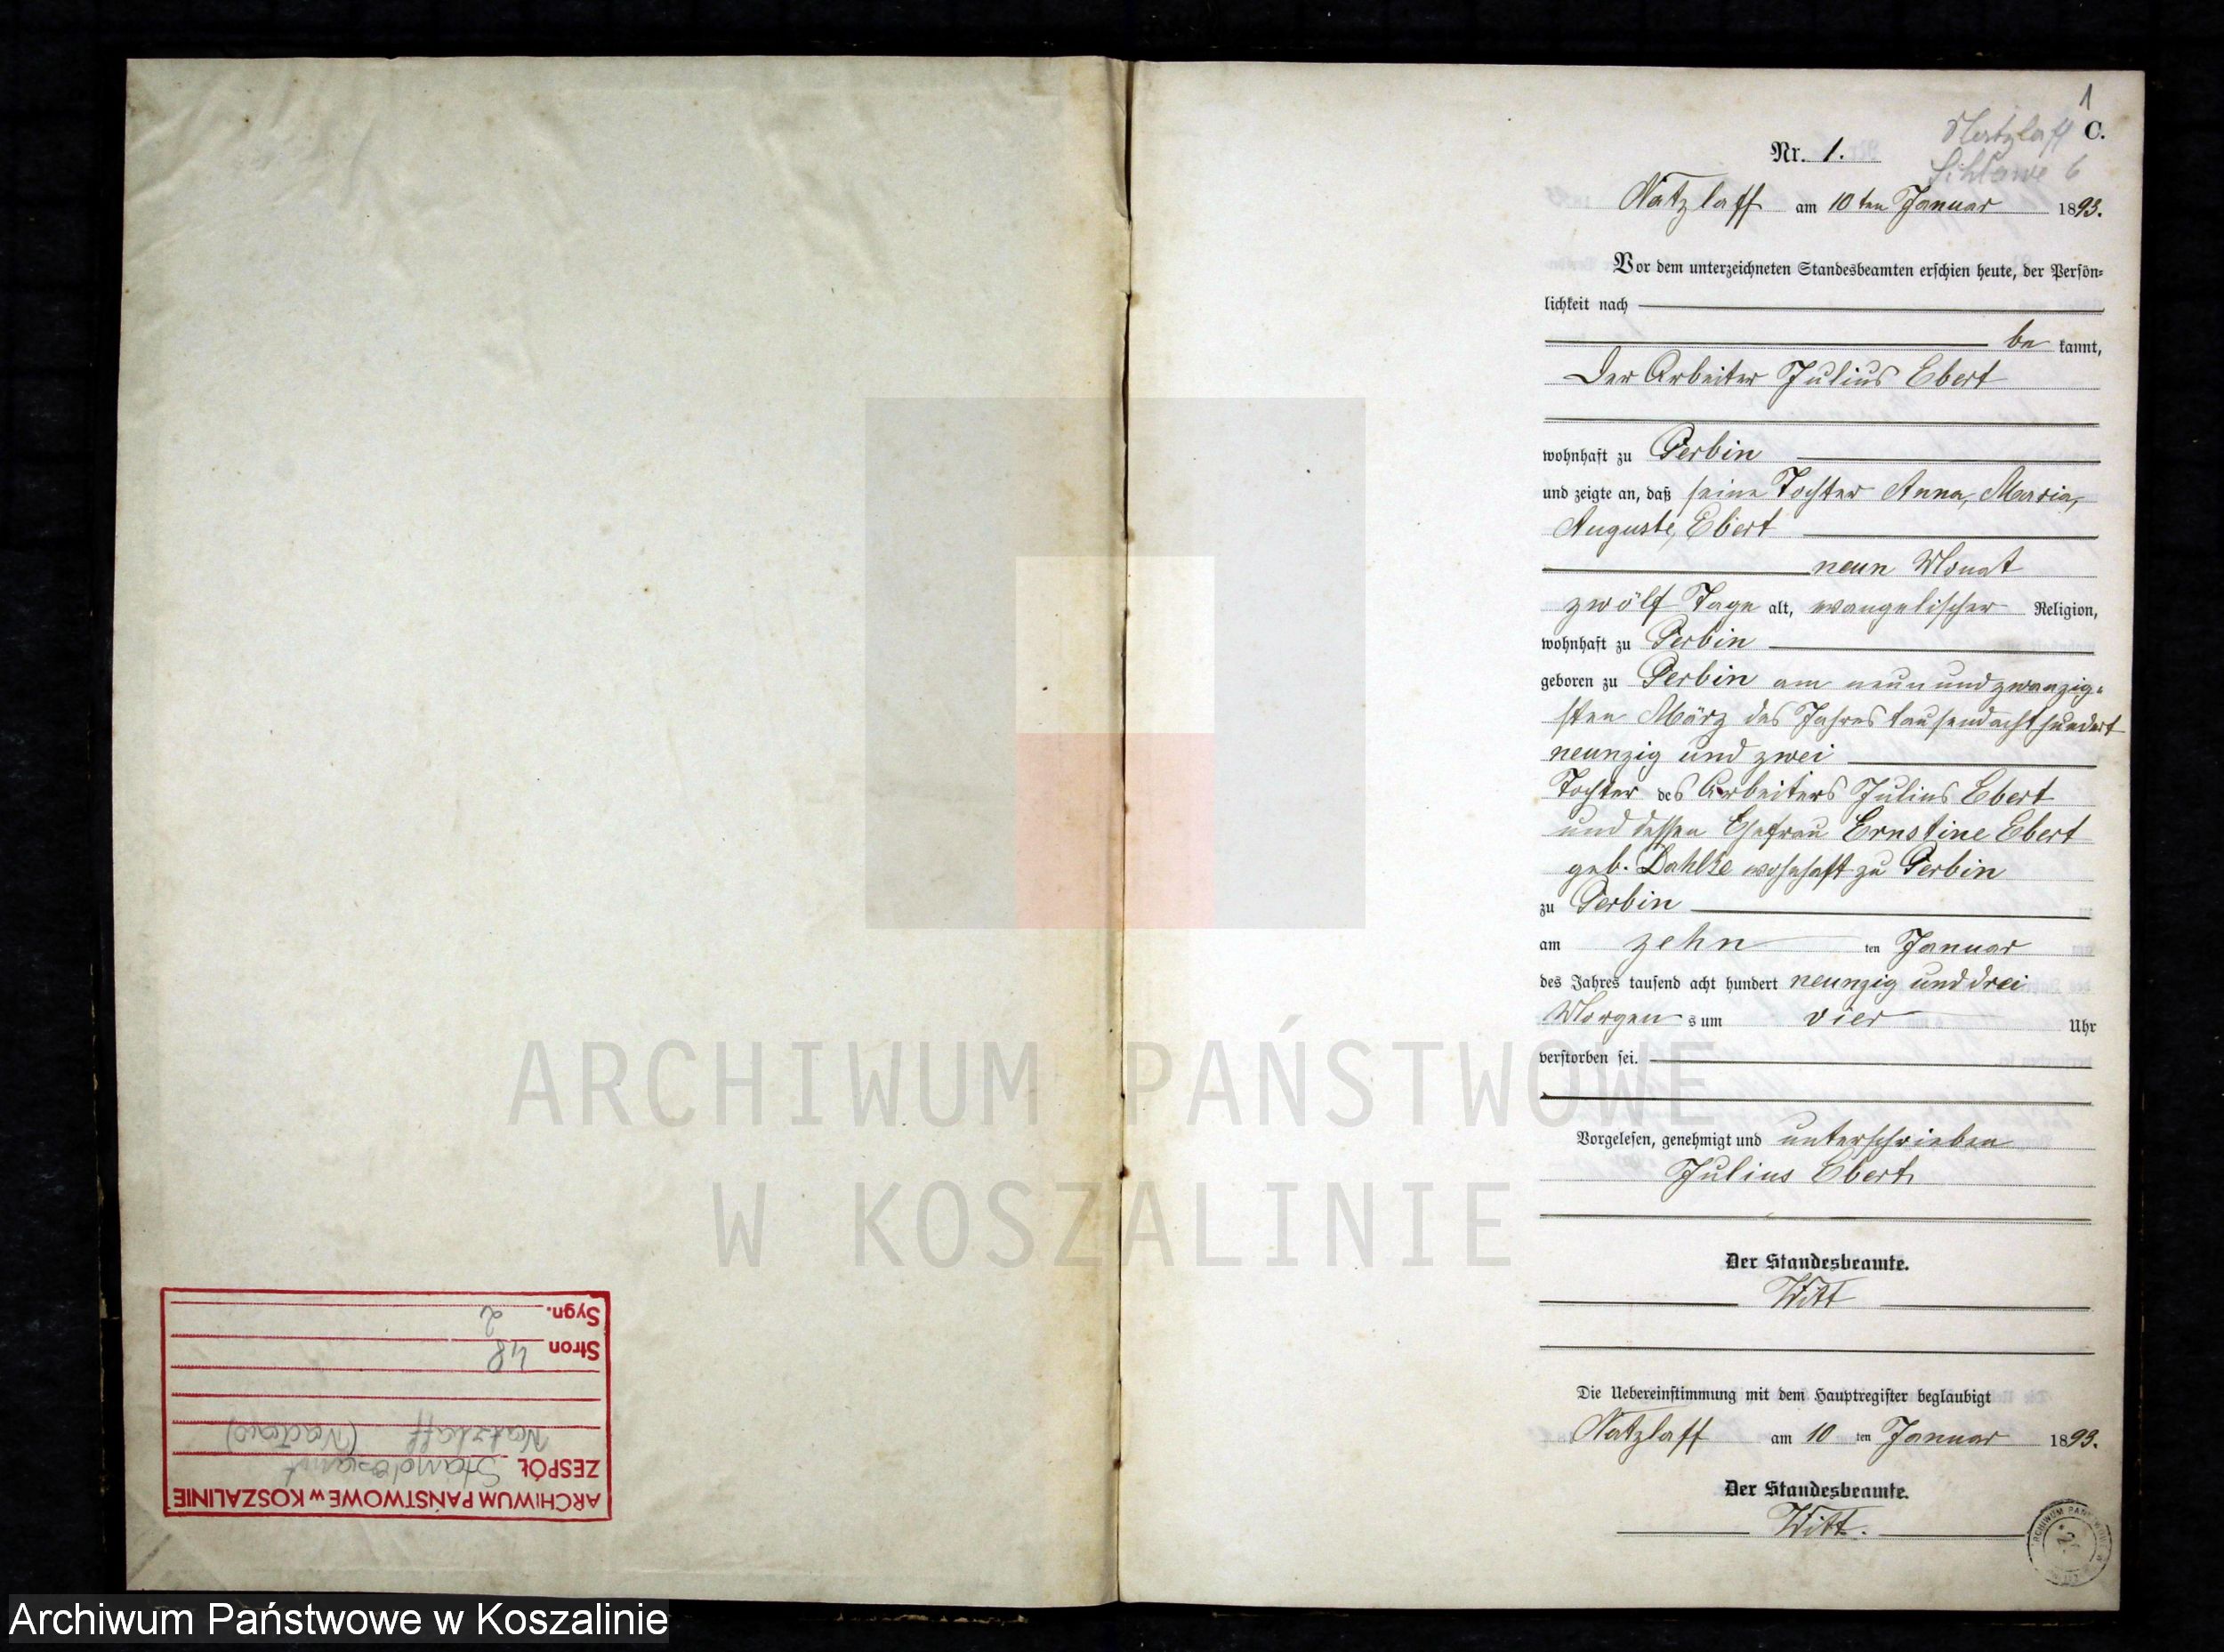 1
C.
Natzlaff
Schlawe 6
Nr. 1.
Natzlaff am 10ten Januar 1893.
Vor dem unterzeichneten Standesbeamten erschien heute, der Persön-
lichkeit nach
be kannt,
der Arbeiter Julius Ebert
wohnhaft zu Perbin
und zeigte an, daß seine Tochter Anna, Maria,
Auguste, Ebert
neun Monat
zwölf Tage alt, evangelischer Religion,
wohnhaft zu Perbin
geboren zu Perbin am neunundzwanzig-
sten März des Jahres tausendachthundert
neunzig und zwei
Tochter des Arbeiters Julius Ebert
und dessen Ehefrau Ernstine Ebert
geb. Dahlke wohnhaft zu Perbin
zu Perbin
am zehn ten Januar
des Jahres tausend acht hundert neunzig und drei
Morgen s um vier Uhr
verstorben sei.
Vorgelesen, genehmigt und unterschrieben
Julius Ebert
Der Standesbeamte.
Witt
Die Uebereinstimmung mit dem Hauptregister beglaubigt
Natzlaff am 10 ten Januar 1893.
Der Standesbeamte.
Witt.
ARCHIWUM PAŃSTWOWE w KOSZALINIE
ZESPÓŁ Standesamt
Natzlaff (Nacław)
Stron 48
Sygn. 2
ARCHIWUM PAŃSTWOWE
W KOSZALINIE
Archiwum Państwowe w Koszalinie